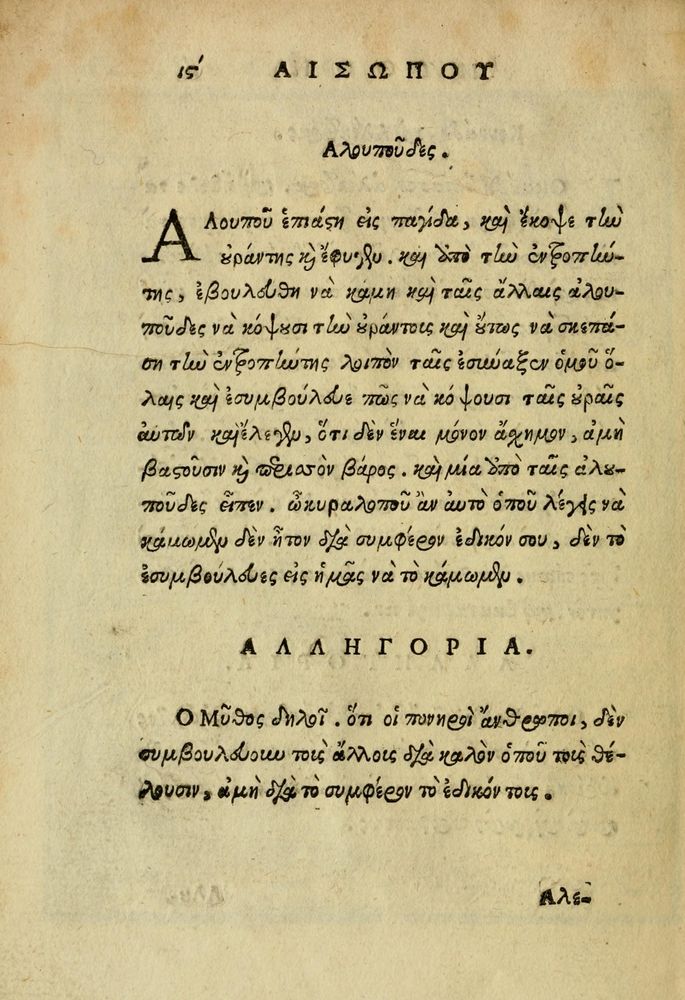 ιϛʹ ΑΙΣΩΠΟΥ
Αλουποῦδες.
ΑΛουποῦ ἐπιάϛη εἰς παγίδα, καὶ ἔκοψε τὼ
οὐράντης κὶ ἔφυγεν. καὶ ὑπὸ τὼ ἐντροπιώ-
της, ἐβουλεύθη νὰ κάμη καὶ ταῖς ἄλλαις ἀλου-
ποῦδες νὰ κόψουσι τὼ οὐράντοις καὶ οὕτως νὰ σκεπά-
ση τὼ ἐντροπιώτης λοιπὸν ταῖς ἐσιώαξεν ὁμοῦ ὅ-
λαις καὶ ἐσυμβούλευε πῶς νὰ κόψουσι ταῖς οὐραῖς
αὐτῶν καὶ ἔλεγεν, ὅτι δὲν ἔναι μόνον ἄσχημον, ἀμὴ
βαϛοῦσιν κὶ περιοσὸν βάρος. καὶ μία ὑπὸ ταῖς ἀλου-
ποῦδες εἶπεν. ὦ κυραλοποῦ ἂν αὐτὸ ὁποῦ λέγεις νὰ
κάμωμεν δὲν ἦτον διὰ συμφέρον ἐδικόν σου, δὲν τὸ
ἐσυμβούλευες εἰς ἡμᾶς νὰ τὸ κάμωμεν.
ΑΛΛΗΓΟΡΙΑ.
Ο Μῦθος δηλοῖ. ὅτι οἱ πονηροὶ ἄνθρωποι, δὲν
συμβουλεύουν τοις ἄλλοις διὰ καλὸν ὁποῦ τοις θέ-
λουσιν, ἀμὴ διὰ τὸ συμφέρον τὸ ἐδικόν τοις.
Αλε-